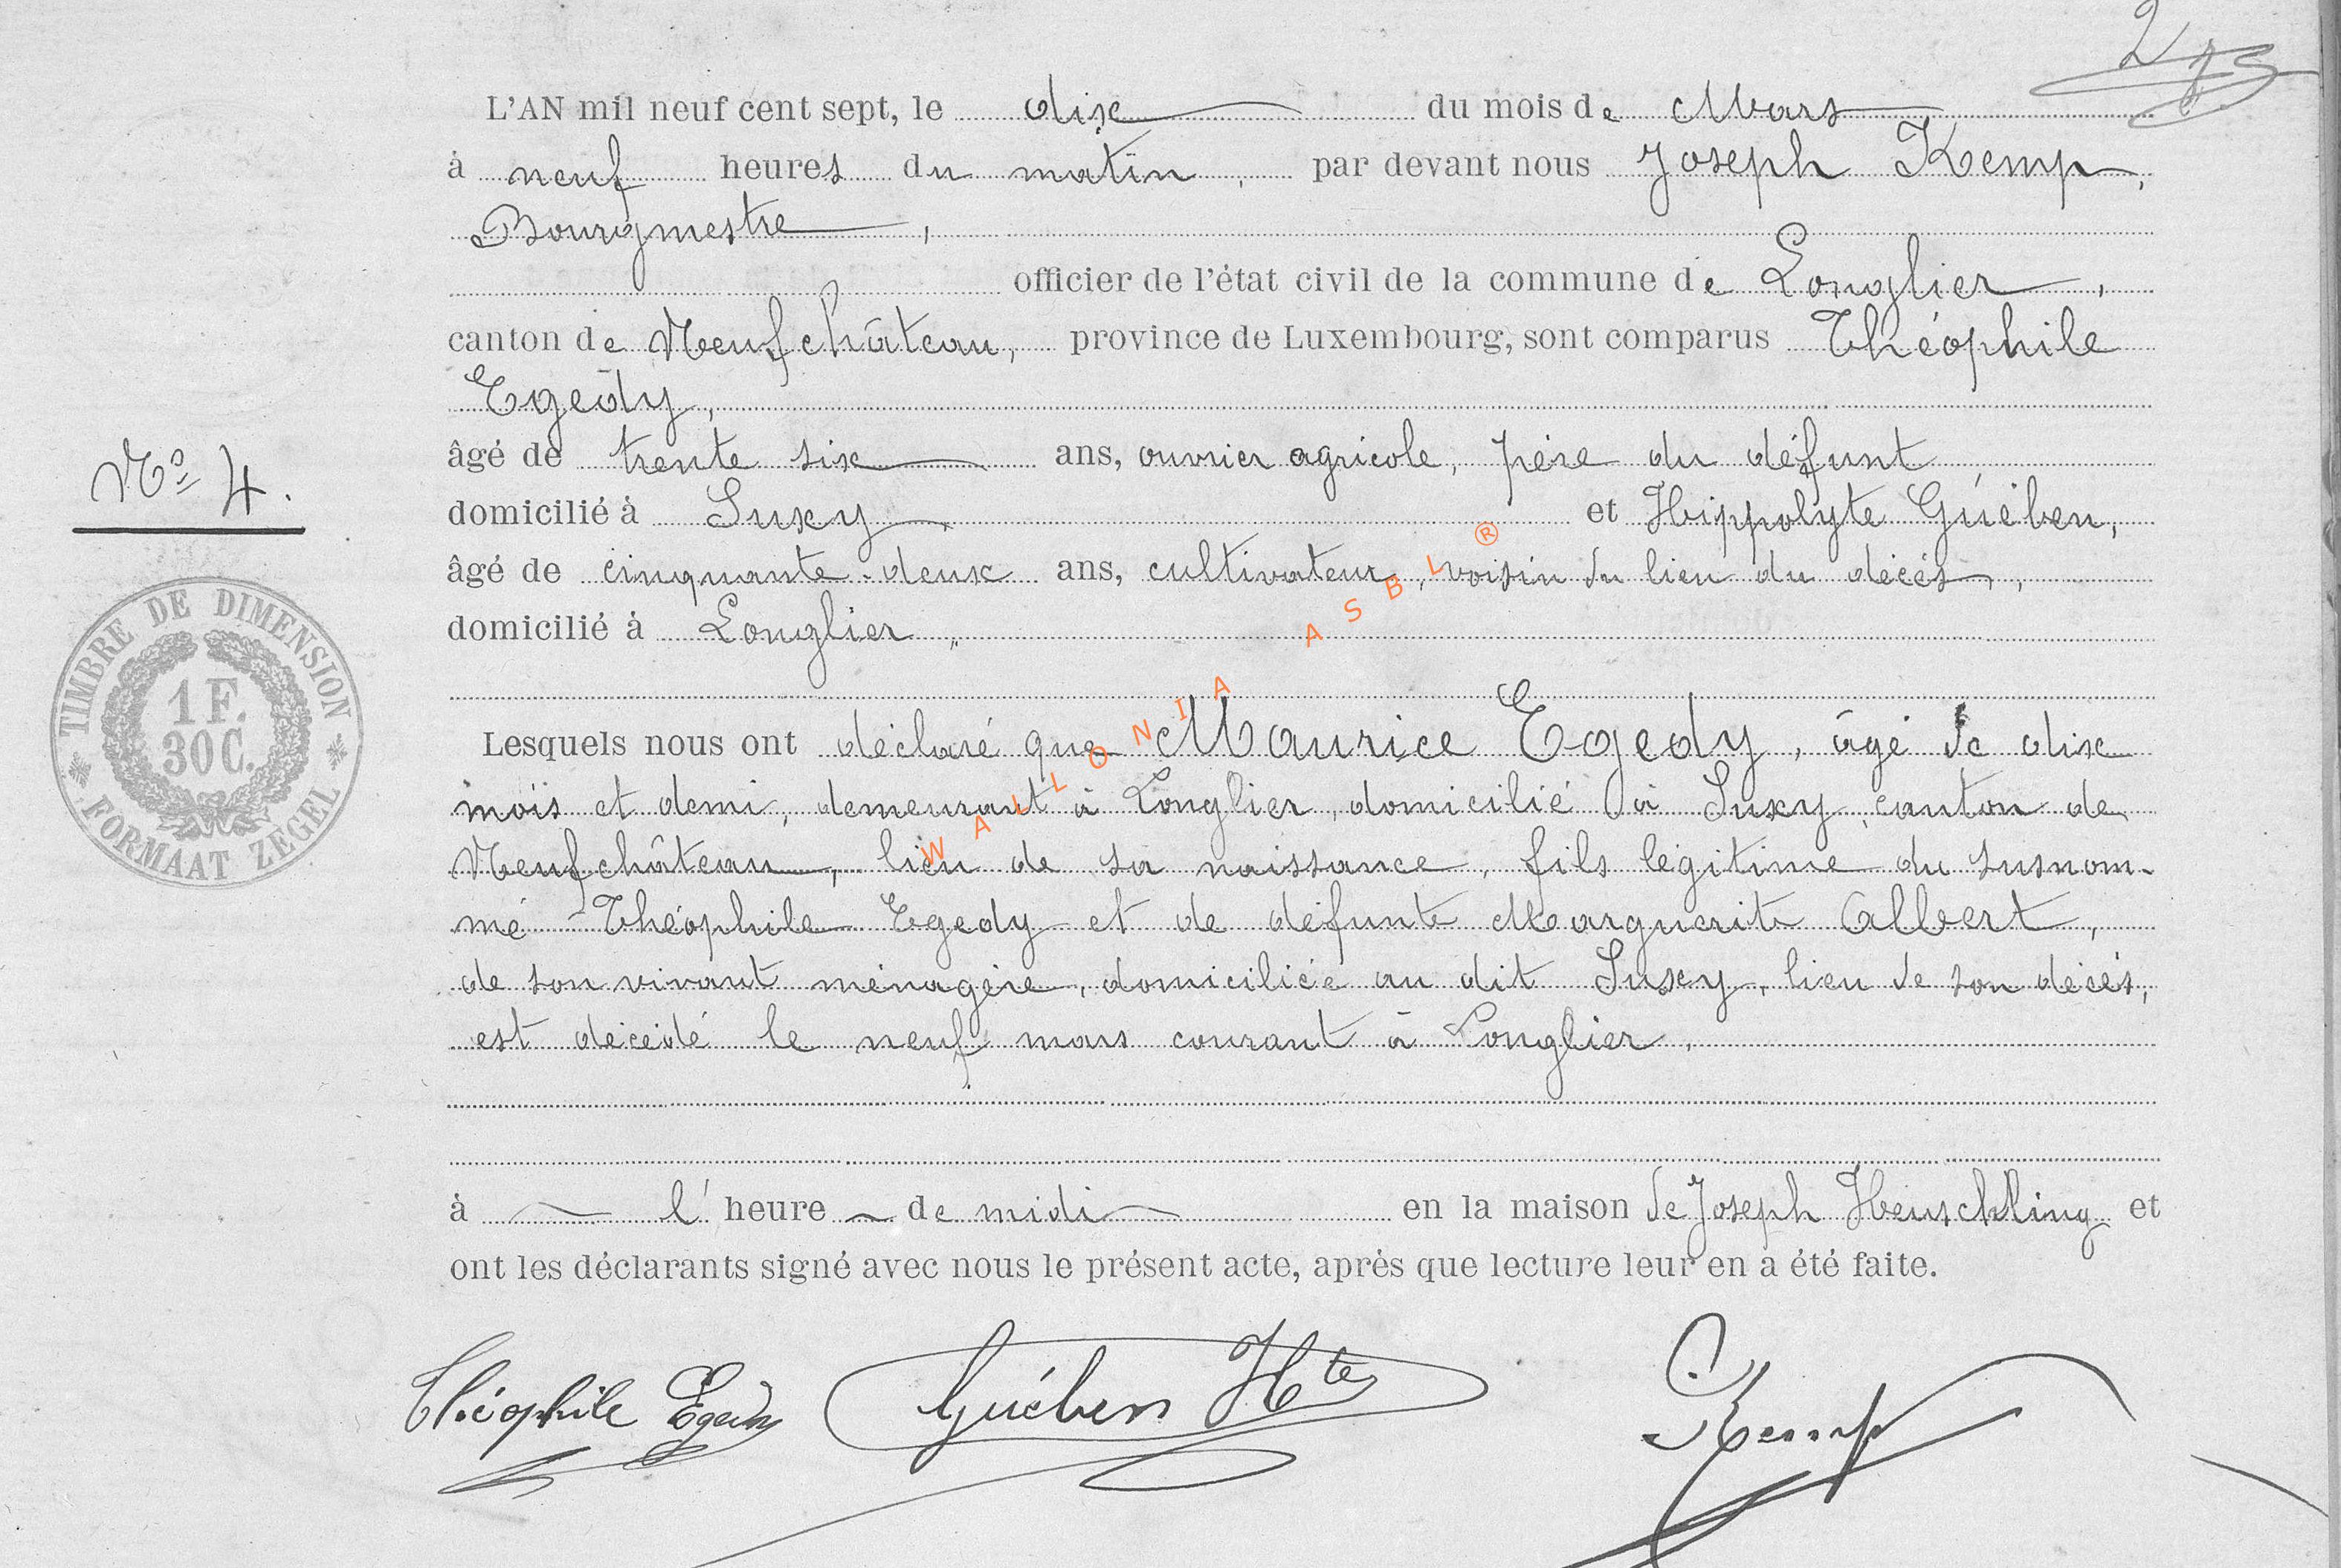 L'AN mil neuf cent sept, le dix du mois de Mars
à neuf heures du matin, par devant nous Joseph Kemp,
Bourgmestre,
officier de l'état civil de la commune de Longlier,
canton de Neufchâteau, province de Luxembourg, sont comparus Théophile
Egedy,
âgé de trente six ans, ouvrier agricole, père du défunt
domicilié à Suxy, et Hippolyte Guében,
âgé de cinquante-deux ans, cultivateur, voisin du lieu du décès,
domicilié à Longlier,
Lesquels nous ont déclaré que Maurice Egedy, âgé de dix
mois et demi, demeurant à Longlier, domicilié à Suxy, canton de
Neufchâteau, lieu de sa naissance, fils légitime du susnom-
mé Théophile Egedy et de défunte Marguerite Albert,
de son vivant ménagère, domiciliée au dit Suxy, lieu de son décès,
est décédé le neuf mars courant à Longlier.
à l'heure de midi en la maison de Joseph Heuschling et
ont les déclarants signé avec nous le présent acte, après que lecture leur en a été faite.
Théophile Egedy Guében Hte Kemp
Nº 4.
TIMBRE DE DIMENSION
1 F.
30 C.
FORMAAT ZEGEL
WALLONIA ASBL ®